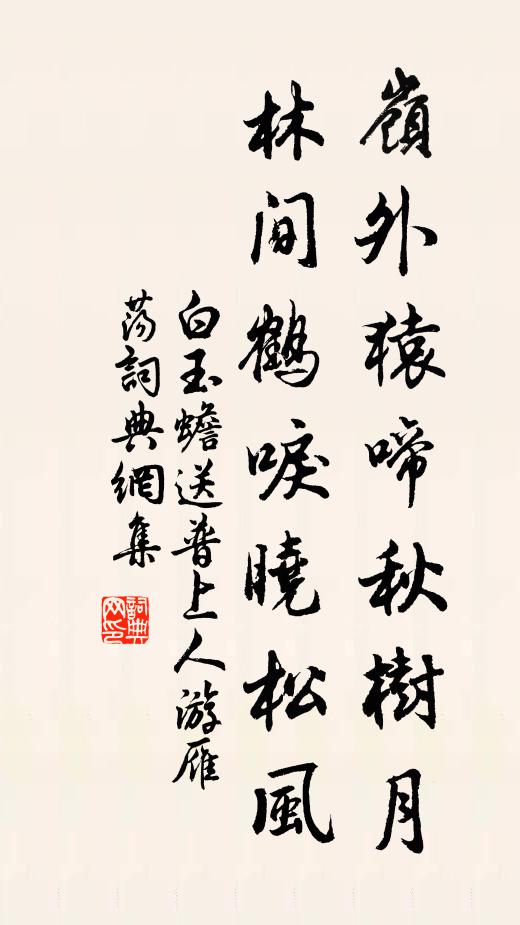 嶺外猿啼秋樹月
林間鶴唳曉松風
白玉蟾送普上人游雁
蕩詞典網集
詞典
网印